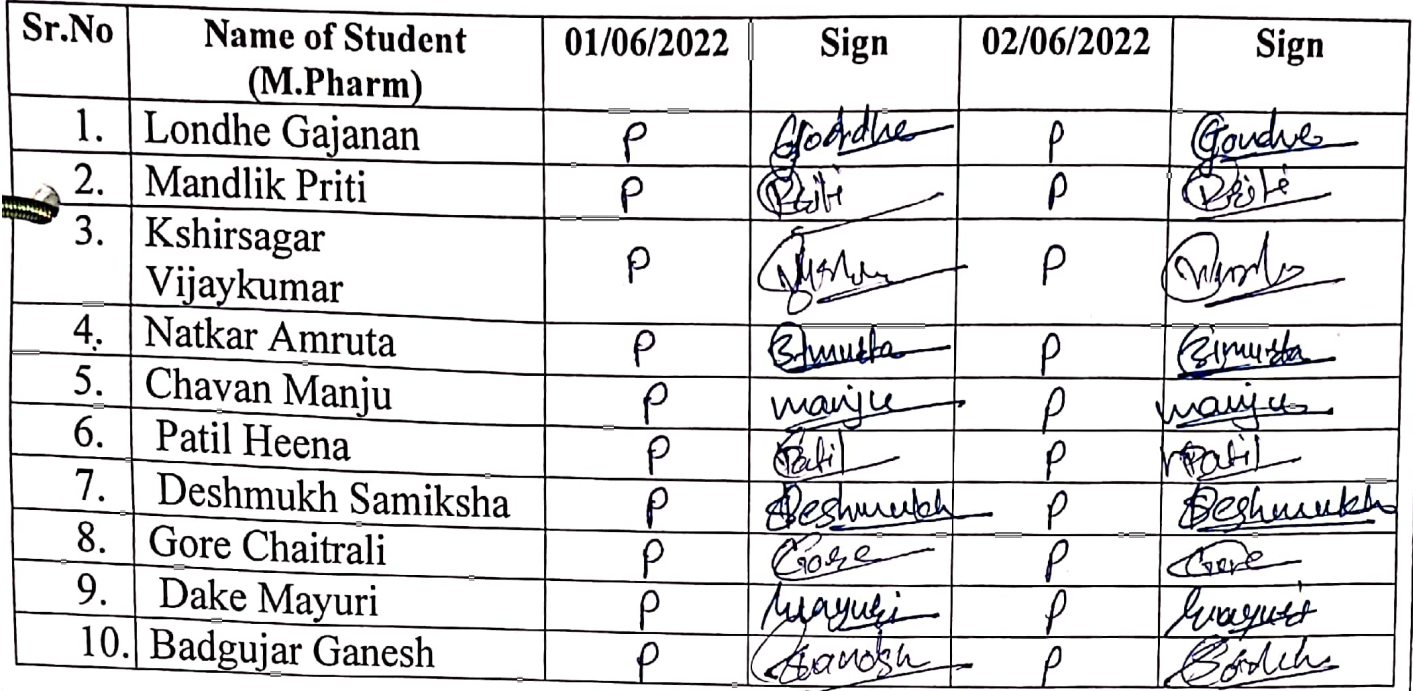 Sr.No Name of Student 01/06/2022 Sign 02/06/2022 Sign
(M.Pharm)
1. Londhe Gajanan P P
2. Mandlik Priti P Priti P Priti
3. Kshirsagar
Vijaykumar P P
4. Natkar Amruta P Amruta P Amruta
5. Chavan Manju P manju P manju
6. Patil Heena P Patil P Patil
7. Deshmukh Samiksha P Deshmukh P Deshmukh
8. Gore Chaitrali P Gore P Gore
9. Dake Mayuri P Mayuri P Mayuri
10. Badgujar Ganesh P P